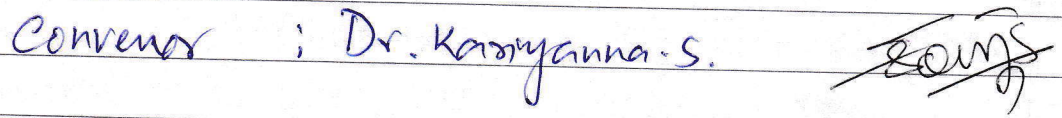 Convenor : Dr. Kariyanna.S.